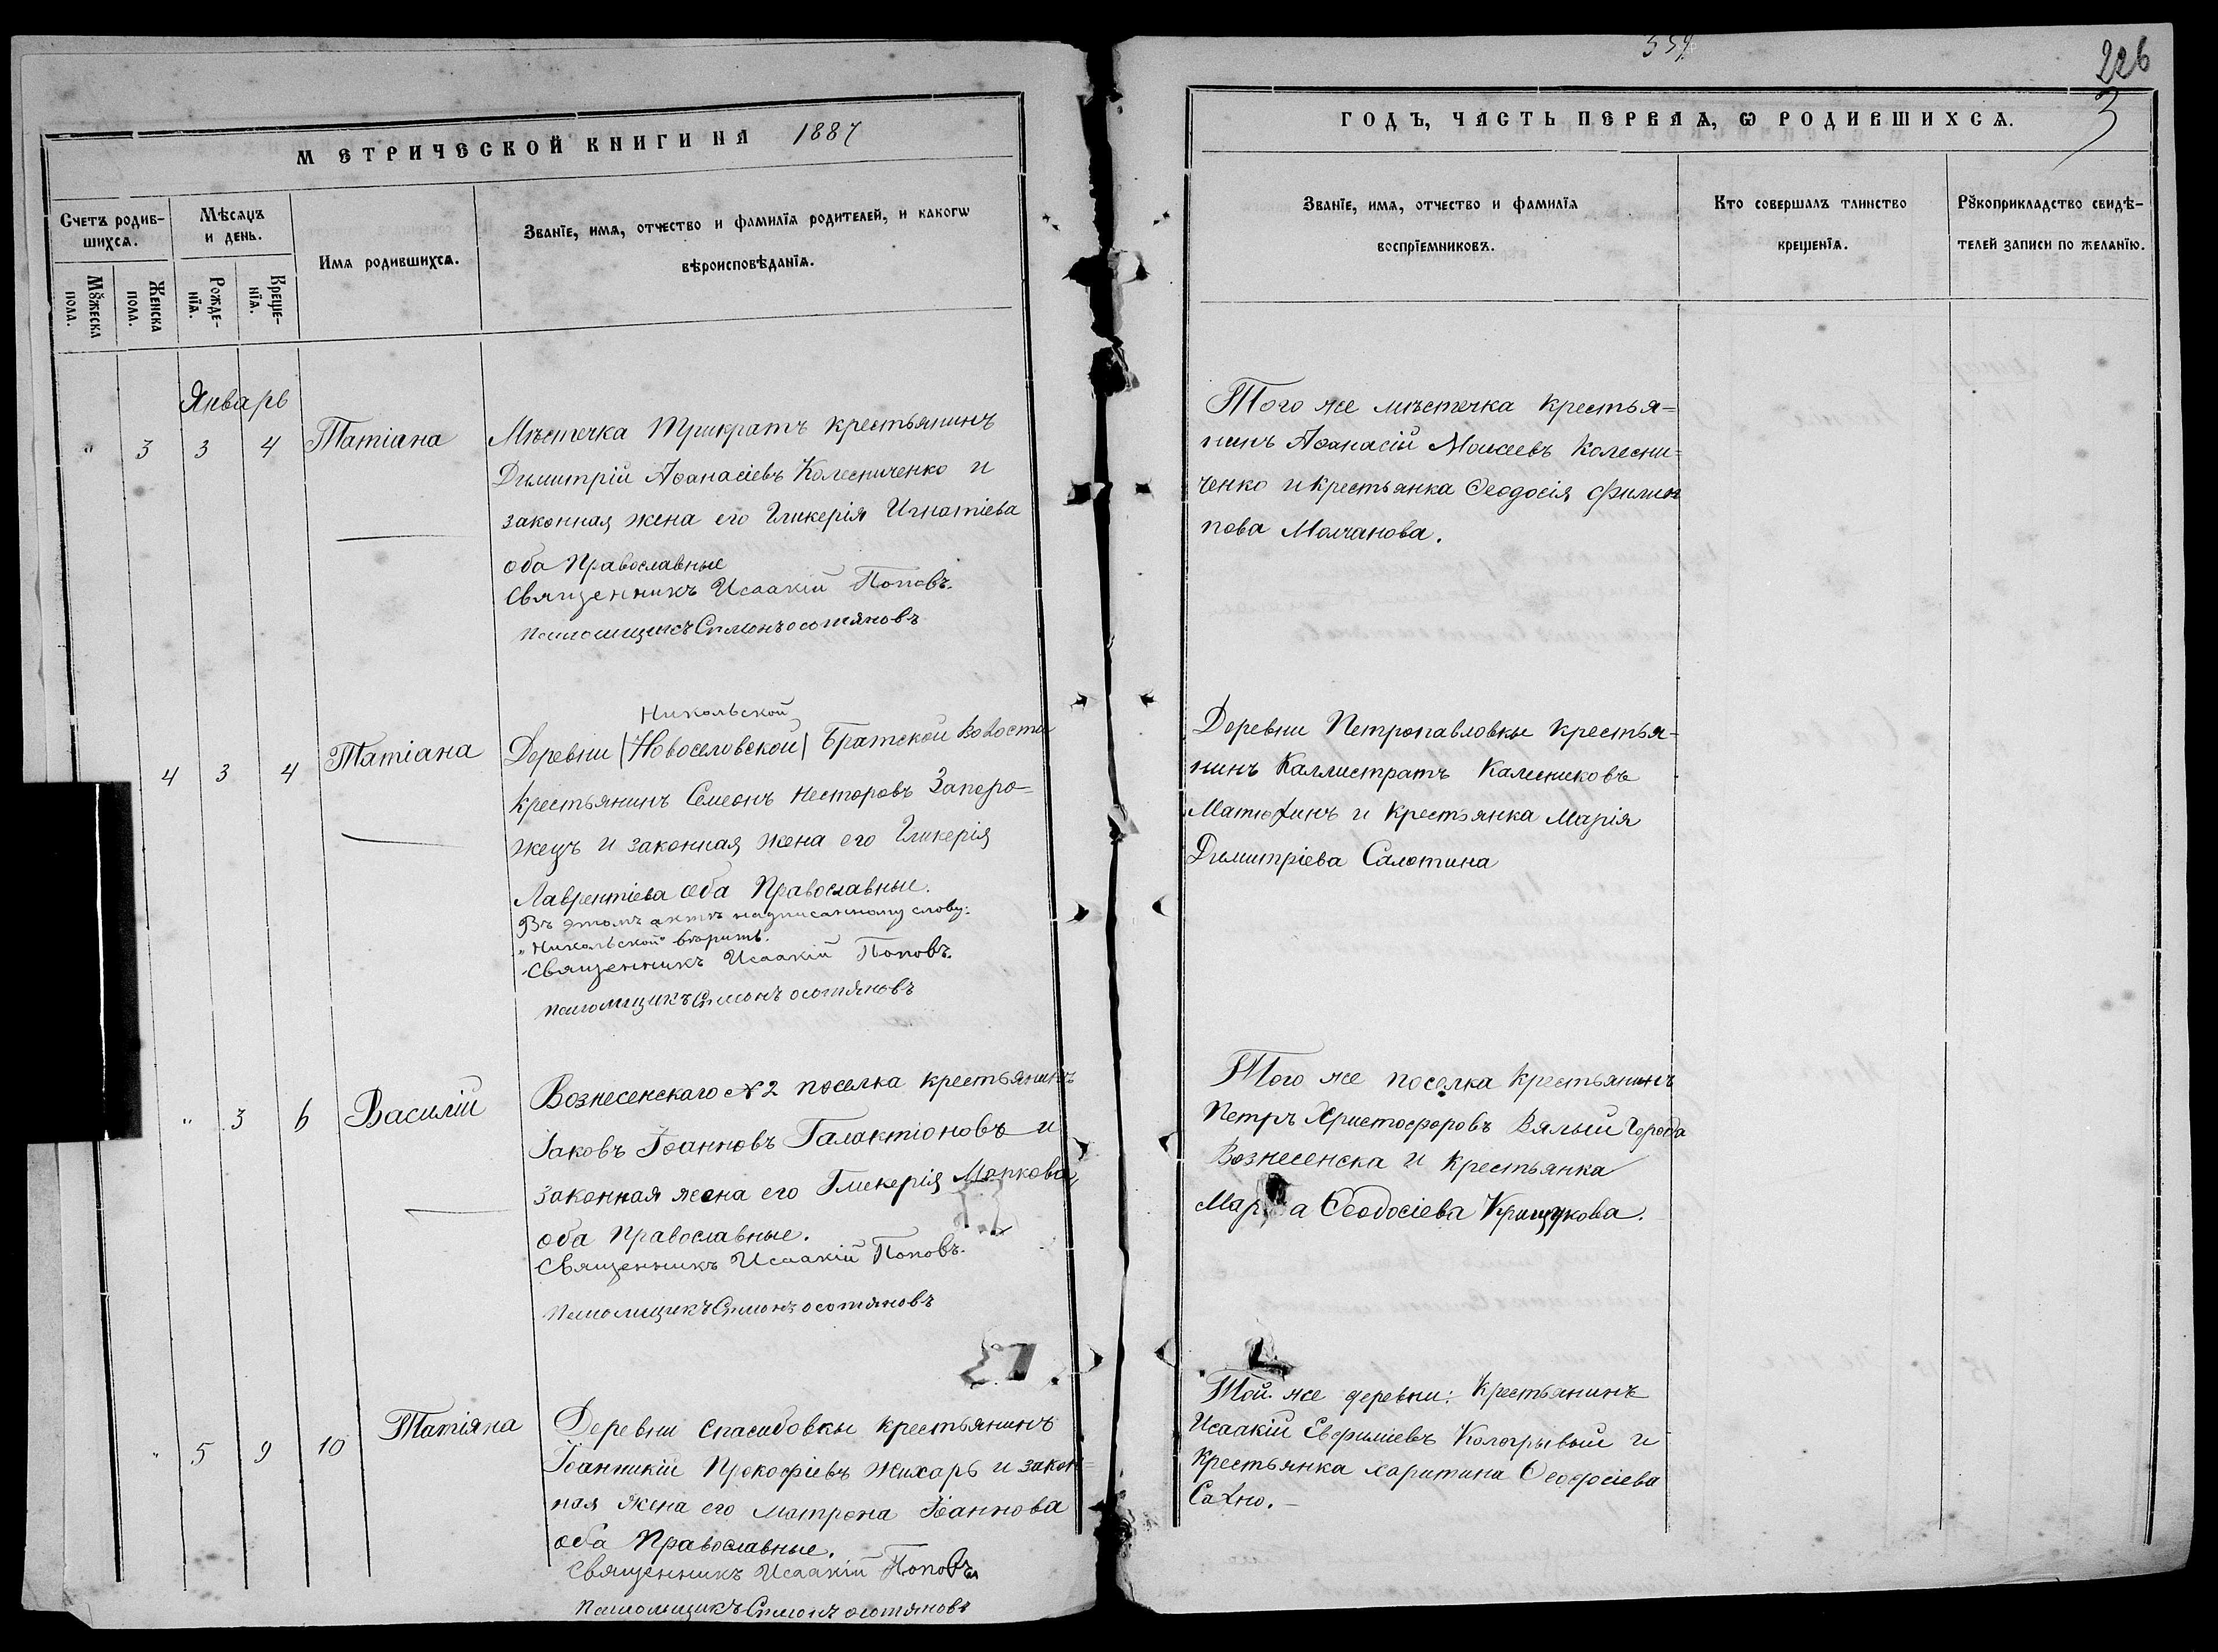 МЕТРИЧЕСКОЙ КНИГИ НА 1887
Счетъ родив-
шихсѧ.
Мѣсяцъ
и день.
Имѧ родившихсѧ.
Званїе, имѧ, отчество и фамилїѧ родителей, и какогѡ
вѣроисповѣданїѧ.
Мꙋжеска
пола.
Женска
пола.
Рожде-
нїѧ.
Креще-
нїѧ.
Январь
" 3 3 4 Татіана
Мѣстечка Трикратъ крестьянинъ
Димитрій Аѳанасіевъ Колесниченко и
законная жена его Гликерія Игнатіева
оба Православные
Священникъ Исаакій Поповъ.
4 3 4 Татіана
Никольской
Деревни (Новоселовской) Братской волости
крестьянинъ Семеонъ Несторовъ Запоро-
жецъ и законная жена его Гликерія
Лаврентіева оба Православные.
Въ этомъ актѣ надписанному слову:
"Никольской" вѣрить.
Священникъ Исаакій Поповъ.
" 3 6 Василій
Вознесенскаго №2 поселка крестьянинъ
Іаковъ Іоанновъ Галактіоновъ и
законная жена его Гликерія Маркова,
оба Православные.
Священникъ Исаакій Поповъ.
" 5 9 10 Татіяна
Деревни Спасибовки крестьянинъ
Іоанникій Прокофіевъ Жихарь и закон-
ная жена его Матрона Іоаннова
оба Православные.
Священникъ Исаакій Поповъ
559.
226
3
ГОДЪ, ЧАСТЬ ПЕРВАѦ, Ѡ РОДИВШИХСѦ.
Званїе, имѧ, отчество и фамилїѧ
воспрїемниковъ.
Кто совершалъ таинство
крещенїѧ.
Рꙋкоприкладство свидѣ-
телей записи по желанїю.
Того же мѣстечка крестья=
нинъ Аѳанасій Моисеевъ Колесни=
ченко и крестьянка Ѳеодосія Филип
пова Молчанова.
Деревни Петропавловки крестья-
нинъ Каллистратъ Калениковъ
Матюхинъ и крестьянка Марія
Димитріева Салотина
Того же поселка крестьянинъ
Петръ Христофоровъ Вялый города
Вознесенска и крестьянка
Ѳеодосіева Крищукова.
Той же деревни: крестьянинъ
Исаакій Евфиміевъ Кологрывый и
крестьянка Харитина Ѳеодосіева
Сахно.-